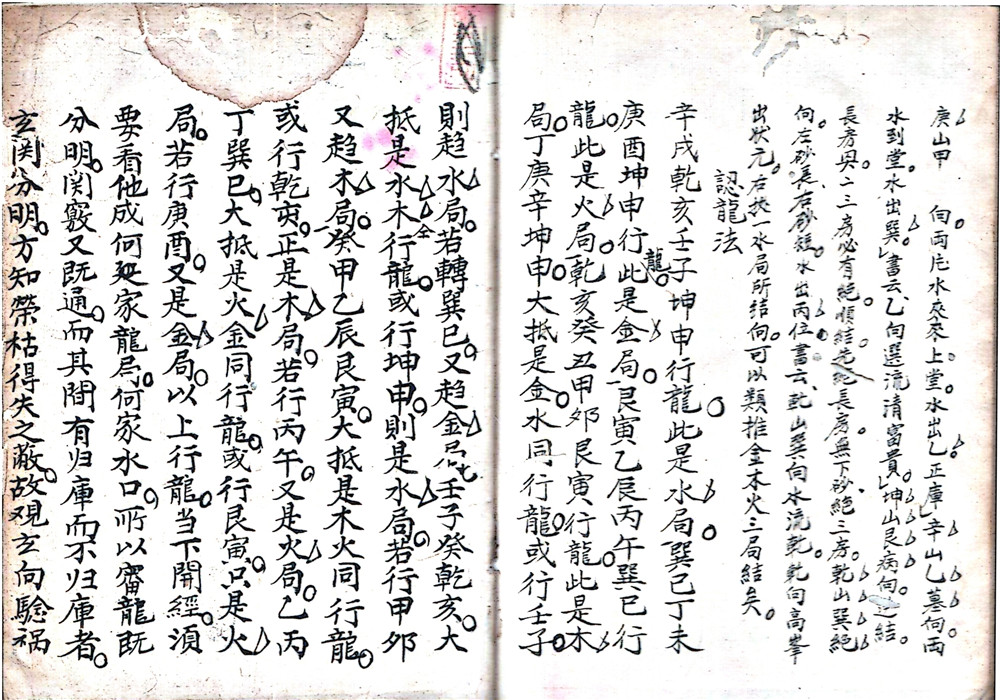 庚山甲向両片水來來上堂水出乙正庫辛山乙墓向両
水到堂水出巽書云乙向選流清富貴坤山艮病向逆結
長房與二三房必有絕順結先絕長房無下砂絕三房乾山巽絕
向左砂長右砂短水出丙位書云乾山巽向水流乾乾向高峯
出狀元右挨一水局所結向可以類推金木火三局結矣
認龍法
辛戌乾亥壬子坤申行龍此是水局巽巳丁未
庚酉坤申行龍此是金局艮寅乙辰丙午巽巳行
龍此是火局乾亥癸丑甲夘艮寅行龍此是木
局丁庚辛坤申大抵是金水同行龍或行壬子
則趋水局若轉巽巳又趋金局壬子癸乾亥大
抵是水木全行龍或行坤申則是水局若行甲夘
又趋木局癸甲乙辰艮寅大抵是木火同行龍
或行乾亥正是木局若行丙午又是火局乙丙
丁巽巳大抵是火金同行龍或行艮寅只是火
局若行庚酉又是金局以上行龍当下開經須
要看他成何家龍局何家水口所以審龍既
分明関竅又既通而其間有归庫而不归庫者
玄関分明方知榮枯得失之蔽故观玄向驗祸